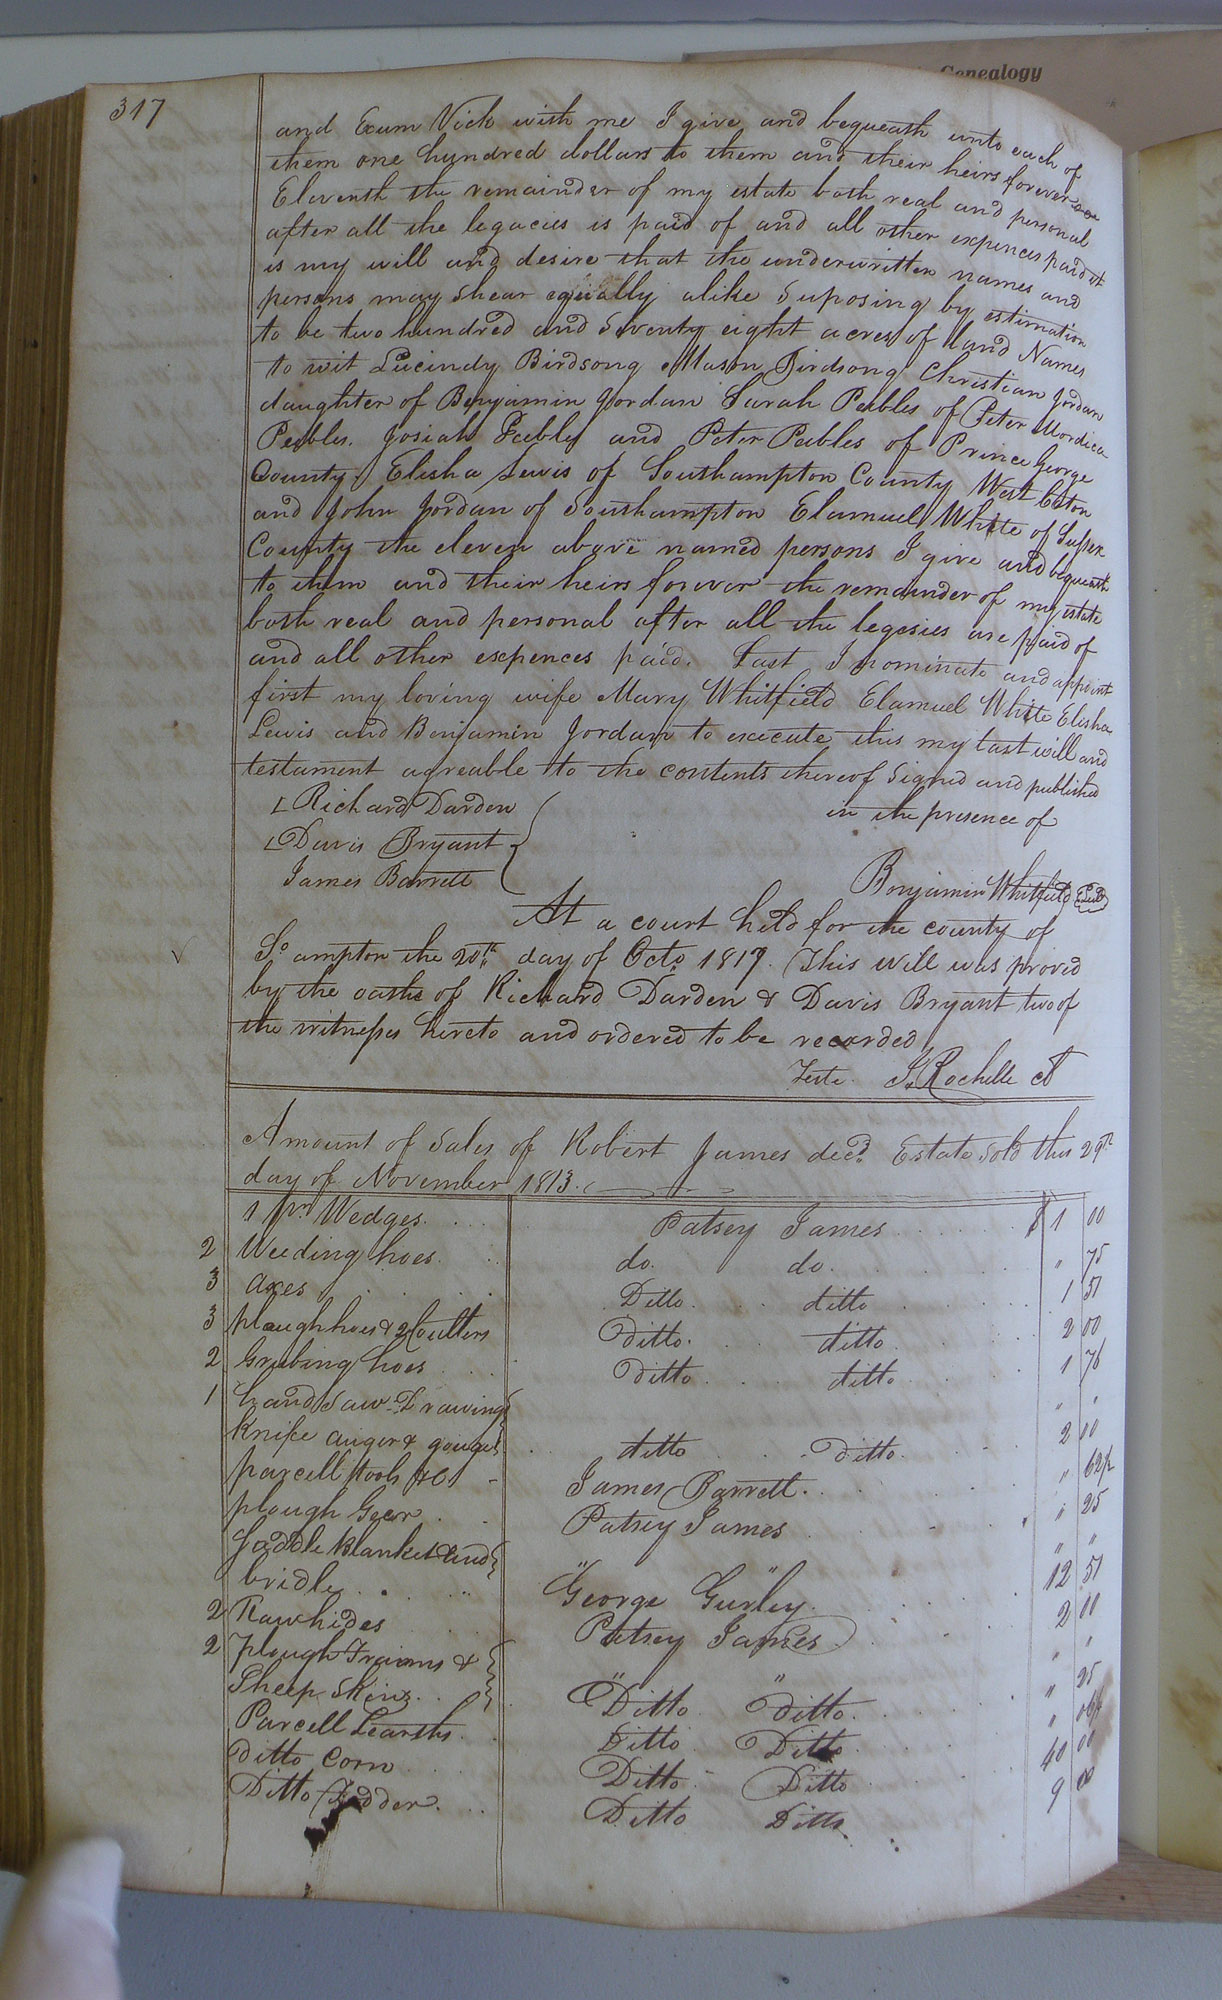 Genealogy
317
and Exum Vick with me I give and bequeath unto each of
them one hundred dollars to them and their heirs forever
Eleventh the remainder of my estate both real and personal
after all the legacies is paid of and all other expences paid it
is my will and desire that the underwritten names and
persons may shear equally alike Suposing by estimation
to be two hundred and Seventy eight acres of land Names
to wit Lucindy Birdsong Mason Birdsong Christian Jordan
daughter of Benjamin Jordan Sarah Peebles of Peter Mordica
Peebles. Josiah Peebles and Peter Peebles of Prince George
County Elisha Lewis of Southampton County West
and John Jordan of Southampton Elamuel White of Sussex
County the eleven above named persons I give and bequeath
to them and their heirs forever the remainder of my estate
both real and personal after all the legesies are paid of
and all other expences paid. Last I nominate and appoint
first my loving wife Mary Whitfield Elamuel White Elisha
Lewis and Benjamin Jordan to execute this my last will and
testament agreable to the contents thereof Signed and published
in the presence of
Richard Darden
Davis Bryant
James Barrett
Benjamin Whitfield Seal
At a court held for the county of
So ampton the 20th day of Octo 1817. This Will was proved
by the oaths of Richard Darden & Davis Bryant two of
the witnesses hereto and ordered to be recorded
Teste. J. Rochelle
Amount of Sales of Robert James decd. Estate Sold this 29th
day of November 1813.
1 pr Wedges. Patsey James $ 1 00
2 Weeding hoes do. do. " 75
3 axes Ditto ditto 1 51
3 ploughhoes & 2 Coulters Ditto. ditto 2 00
2 Grubing hoes Ditto ditto 1 76
1 handsaw Drawing " "
knife auger & gouge ditto Ditto. 2 00
parcell tools &C James Barrett. " 62½
plough Gear Patsey James " 25
Saddle blanket and " "
bridle George Gurley. 12 51
2 Rawhides Patsey James 2 00
2 plough Frames & " "
Sheep Skins Ditto ditto. " 25
Parcell Ditto Ditto "
Ditto Corn Ditto Ditto 40 00
Ditto Fodder. Ditto Ditto 9 00